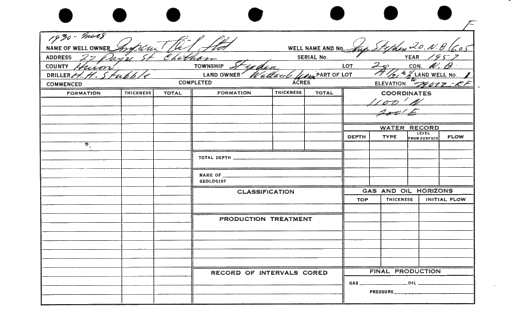 F
1930-
NAME OF WELL OWNER Oil Ltd WELL NAME AND No. Imp. 20 N.B. 1605
ADDRESS 22 St Chatham SERIAL No. YEAR 1957
COUNTY Huron TOWNSHIP Stephen LOT 20 CON. N.B
DRILLER H.H. Stubble LAND OWNER Wallace PART OF LOT LAND WELL No. 1
COMMENCED COMPLETED ACRES ELEVATION
FORMATION THICKNESS TOTAL FORMATION THICKNESS TOTAL COORDINATES
1100' N
200' E
WATER RECORD
DEPTH TYPE LEVEL FROM SURFACE FLOW
TOTAL DEPTH
NAME OF GEOLOGIST
CLASSIFICATION GAS AND OIL HORIZONS
TOP THICKNESS INITIAL FLOW
PRODUCTION TREATMENT
RECORD OF INTERVALS CORED FINAL PRODUCTION
GAS OIL
PRESSURE